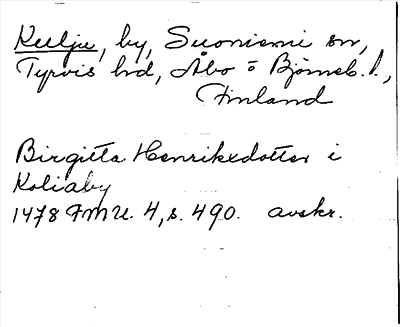 Kulju, by, Suoniemi sn,
Tyrvis hd, Åbo o Björneb. l.,
Finland
Birgitta Henriksdotter i
Koliaby
1478 FMU. 4, s. 490. avskr.